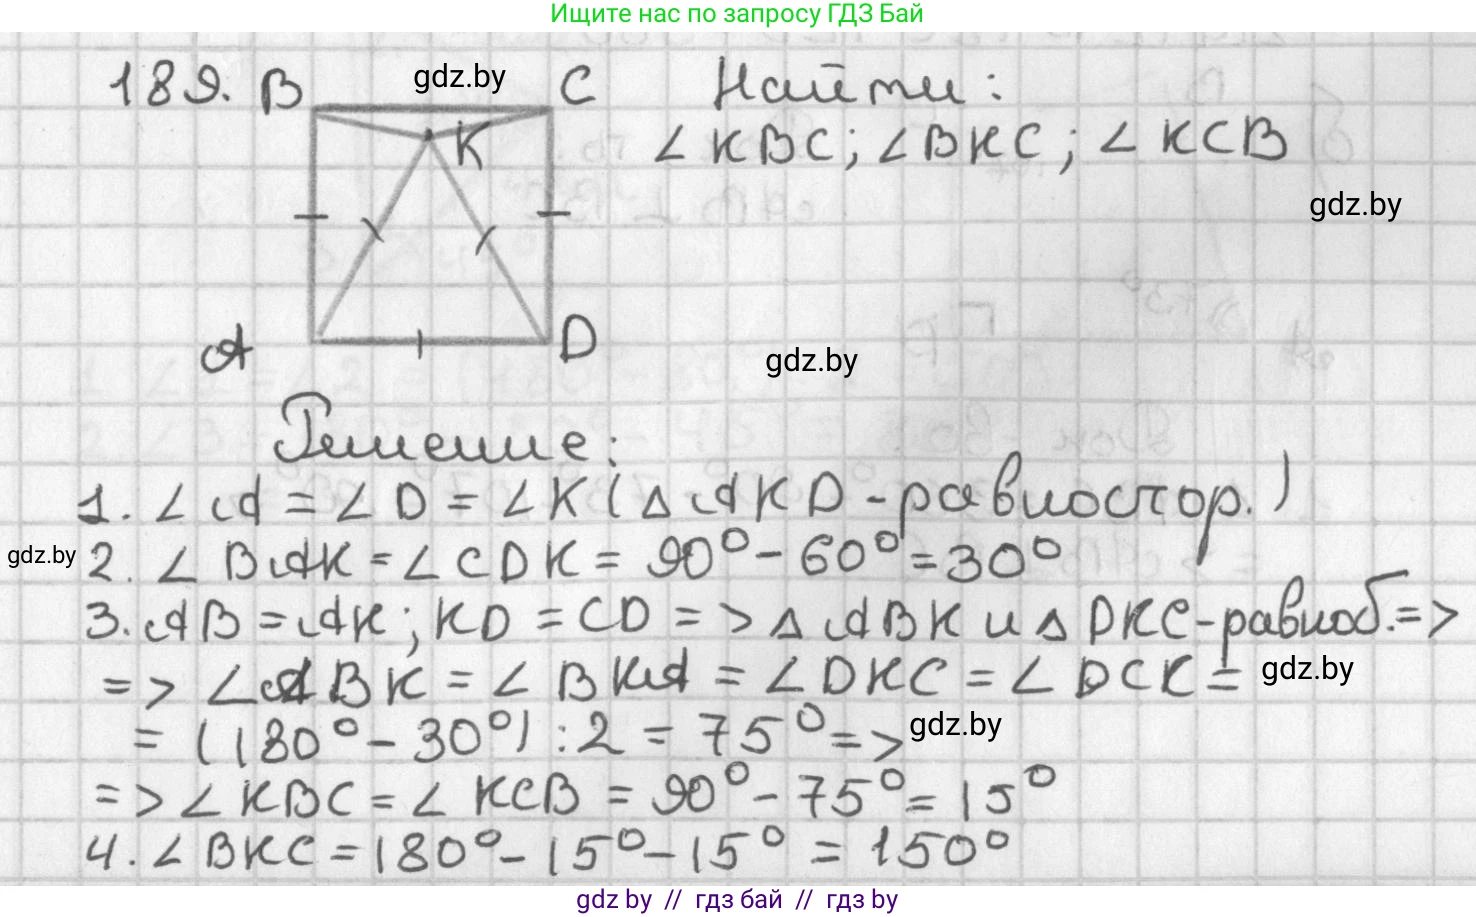 Ищите нас по запросу ГДЗ Бай
189. B C Найти:
gdz.by
K
∠KBC; ∠BKC; ∠KCB
gdz.by
A D
gdz.by
Решение:
1. ∠A = ∠D = ∠K (△AKD - равностор.)
gdz.by
2. ∠BAK = ∠CDK = 90° - 60° = 30°
3. AB = AK; KD = CD => △ABK и △DKC - равноб. =>
=> ∠ABK = ∠BKA = ∠DKC = ∠DCK =
gdz.by
= (180° - 30°) : 2 = 75° =>
gdz.by
=> ∠KBC = ∠KCB = 90° - 75° = 15°
4. ∠BKC = 180° - 15° - 15° = 150°
gdz by // гдз бай // гдз by